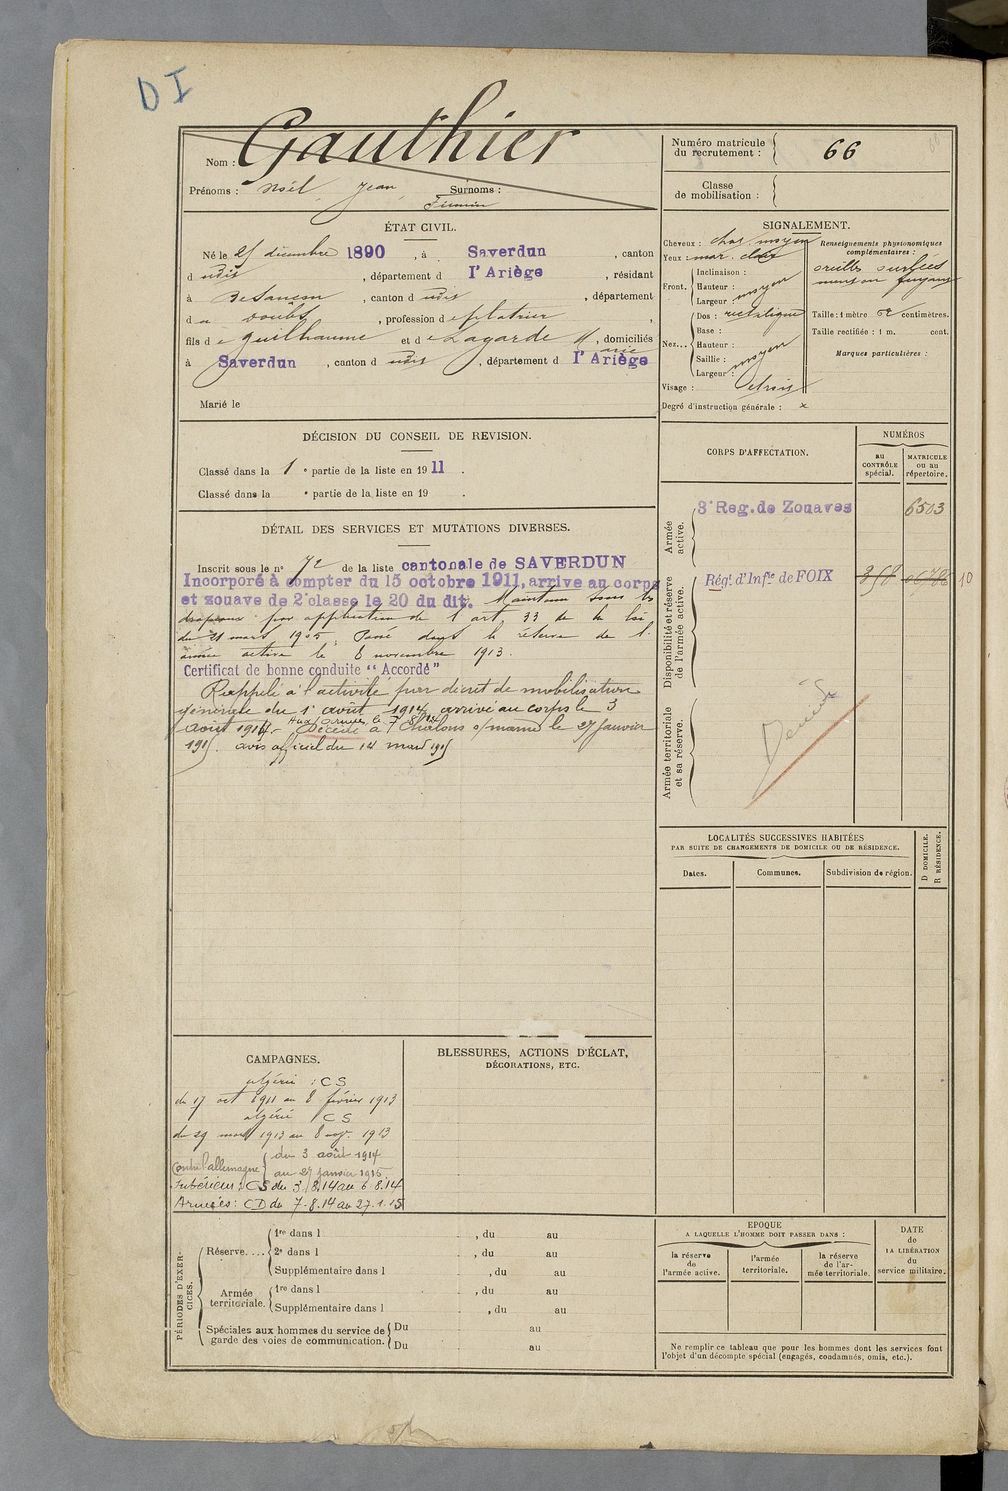 D I
Nom : Gauthier
Prénoms : Noël Jean Surnoms :
Firmin
Numéro matricule
du recrutement : 66
Classe
de mobilisation :
ÉTAT CIVIL.
Né le 25 décembre 1890 , à Saverdun , canton
d udit , département d l'Ariège , résidant
à Besançon , canton d udit , département
d u Doubs , profession de platrier ,
fils de Guilhaume et de Lagarde Marie , domiciliés
à Saverdun , canton d udit , département d l'Ariège
Marié le
SIGNALEMENT.
Cheveux : chat. moyen
Yeux : mar. clair
Front. Inclinaison :
Hauteur : moyen
Largeur :
Nez... Dos : rectiligne
Base :
Hauteur : moyen
Saillie :
Largeur :
Visage : étroit
Degré d'instruction générale : x
Renseignements physionomiques
complémentaires :
oreilles
menton fuyant
Taille : 1 mètre centimètres.
Taille rectifiée : 1 m. cent.
Marques particulières :
DÉCISION DU CONSEIL DE REVISION.
Classé dans la 1e partie de la liste en 1911 .
Classé dans la e partie de la liste en 19 .
CORPS D'AFFECTATION.
NUMÉROS
AU CONTRÔLE spécial.
MATRICULE ou au répertoire.
Armée active.
3e Reg. de Zouaves 6503
Disponibilité et réserve de l'armée active.
Régt. d'Infie de FOIX
10
Armée territoriale et sa réserve.
DÉTAIL DES SERVICES ET MUTATIONS DIVERSES.
Inscrit sous le n° 72 de la liste cantonale de SAVERDUN
Incorporé à compter du 15 octobre 1911, arrive au corps
et zouave de 2e classe le 20 du dit. Maintenu sous les
drapeaux par application de l'art. 33 de la loi
du 21 mars 1905. Passé dans la réserve de l'
armée active le 8 novembre 1913.
Certificat de bonne conduite "Accordé"
Rappelé à l'activité par décret de mobilisation
générale du 1er août 1914 arrivé au corps le 3
août 1914. Aux armées le 7 8 14 Décédé à Chalons s/marne le 27 janvier
1915. avis officiel du 14 mars 1915
LOCALITÉS SUCCESSIVES HABITÉES
PAR SUITE DE CHANGEMENTS DE DOMICILE OU DE RÉSIDENCE.
Dates.
Communes.
Subdivision de région.
D DOMICILE.
R RÉSIDENCE.
CAMPAGNES.
algérie : CS
du 17 oct 1911 au 8 février 1913
algérie CS
du 29 mars 1913 au 8 nov. 1913
Contre l'allemagne du 3 août 1914
au 27 janvier 1915
Intérieur : CS du 3.8.14 au 6.8.14
Armées : CD du 7.8.14 au 27.1.15
BLESSURES, ACTIONS D'ÉCLAT,
DÉCORATIONS, ETC.
PÉRIODES D'EXERCICES.
Réserve....
1re dans l , du au
2e dans l , du au
Supplémentaire dans l , du au
Armée territoriale.
1re dans l , du au
Supplémentaire dans l , du au
Spéciales aux hommes du service de
garde des voies de communication.
Du au
Du au
EPOQUE
A LAQUELLE L'HOMME DOIT PASSER DANS :
la réserve de l'armée active.
l'armée territoriale.
la réserve de l'armée territoriale.
DATE
DE
LA LIBÉRATION
du
service militaire.
Ne remplir ce tableau que pour les hommes dont les services font
l'objet d'un décompte spécial (engagés, condamnés, omis, etc.).